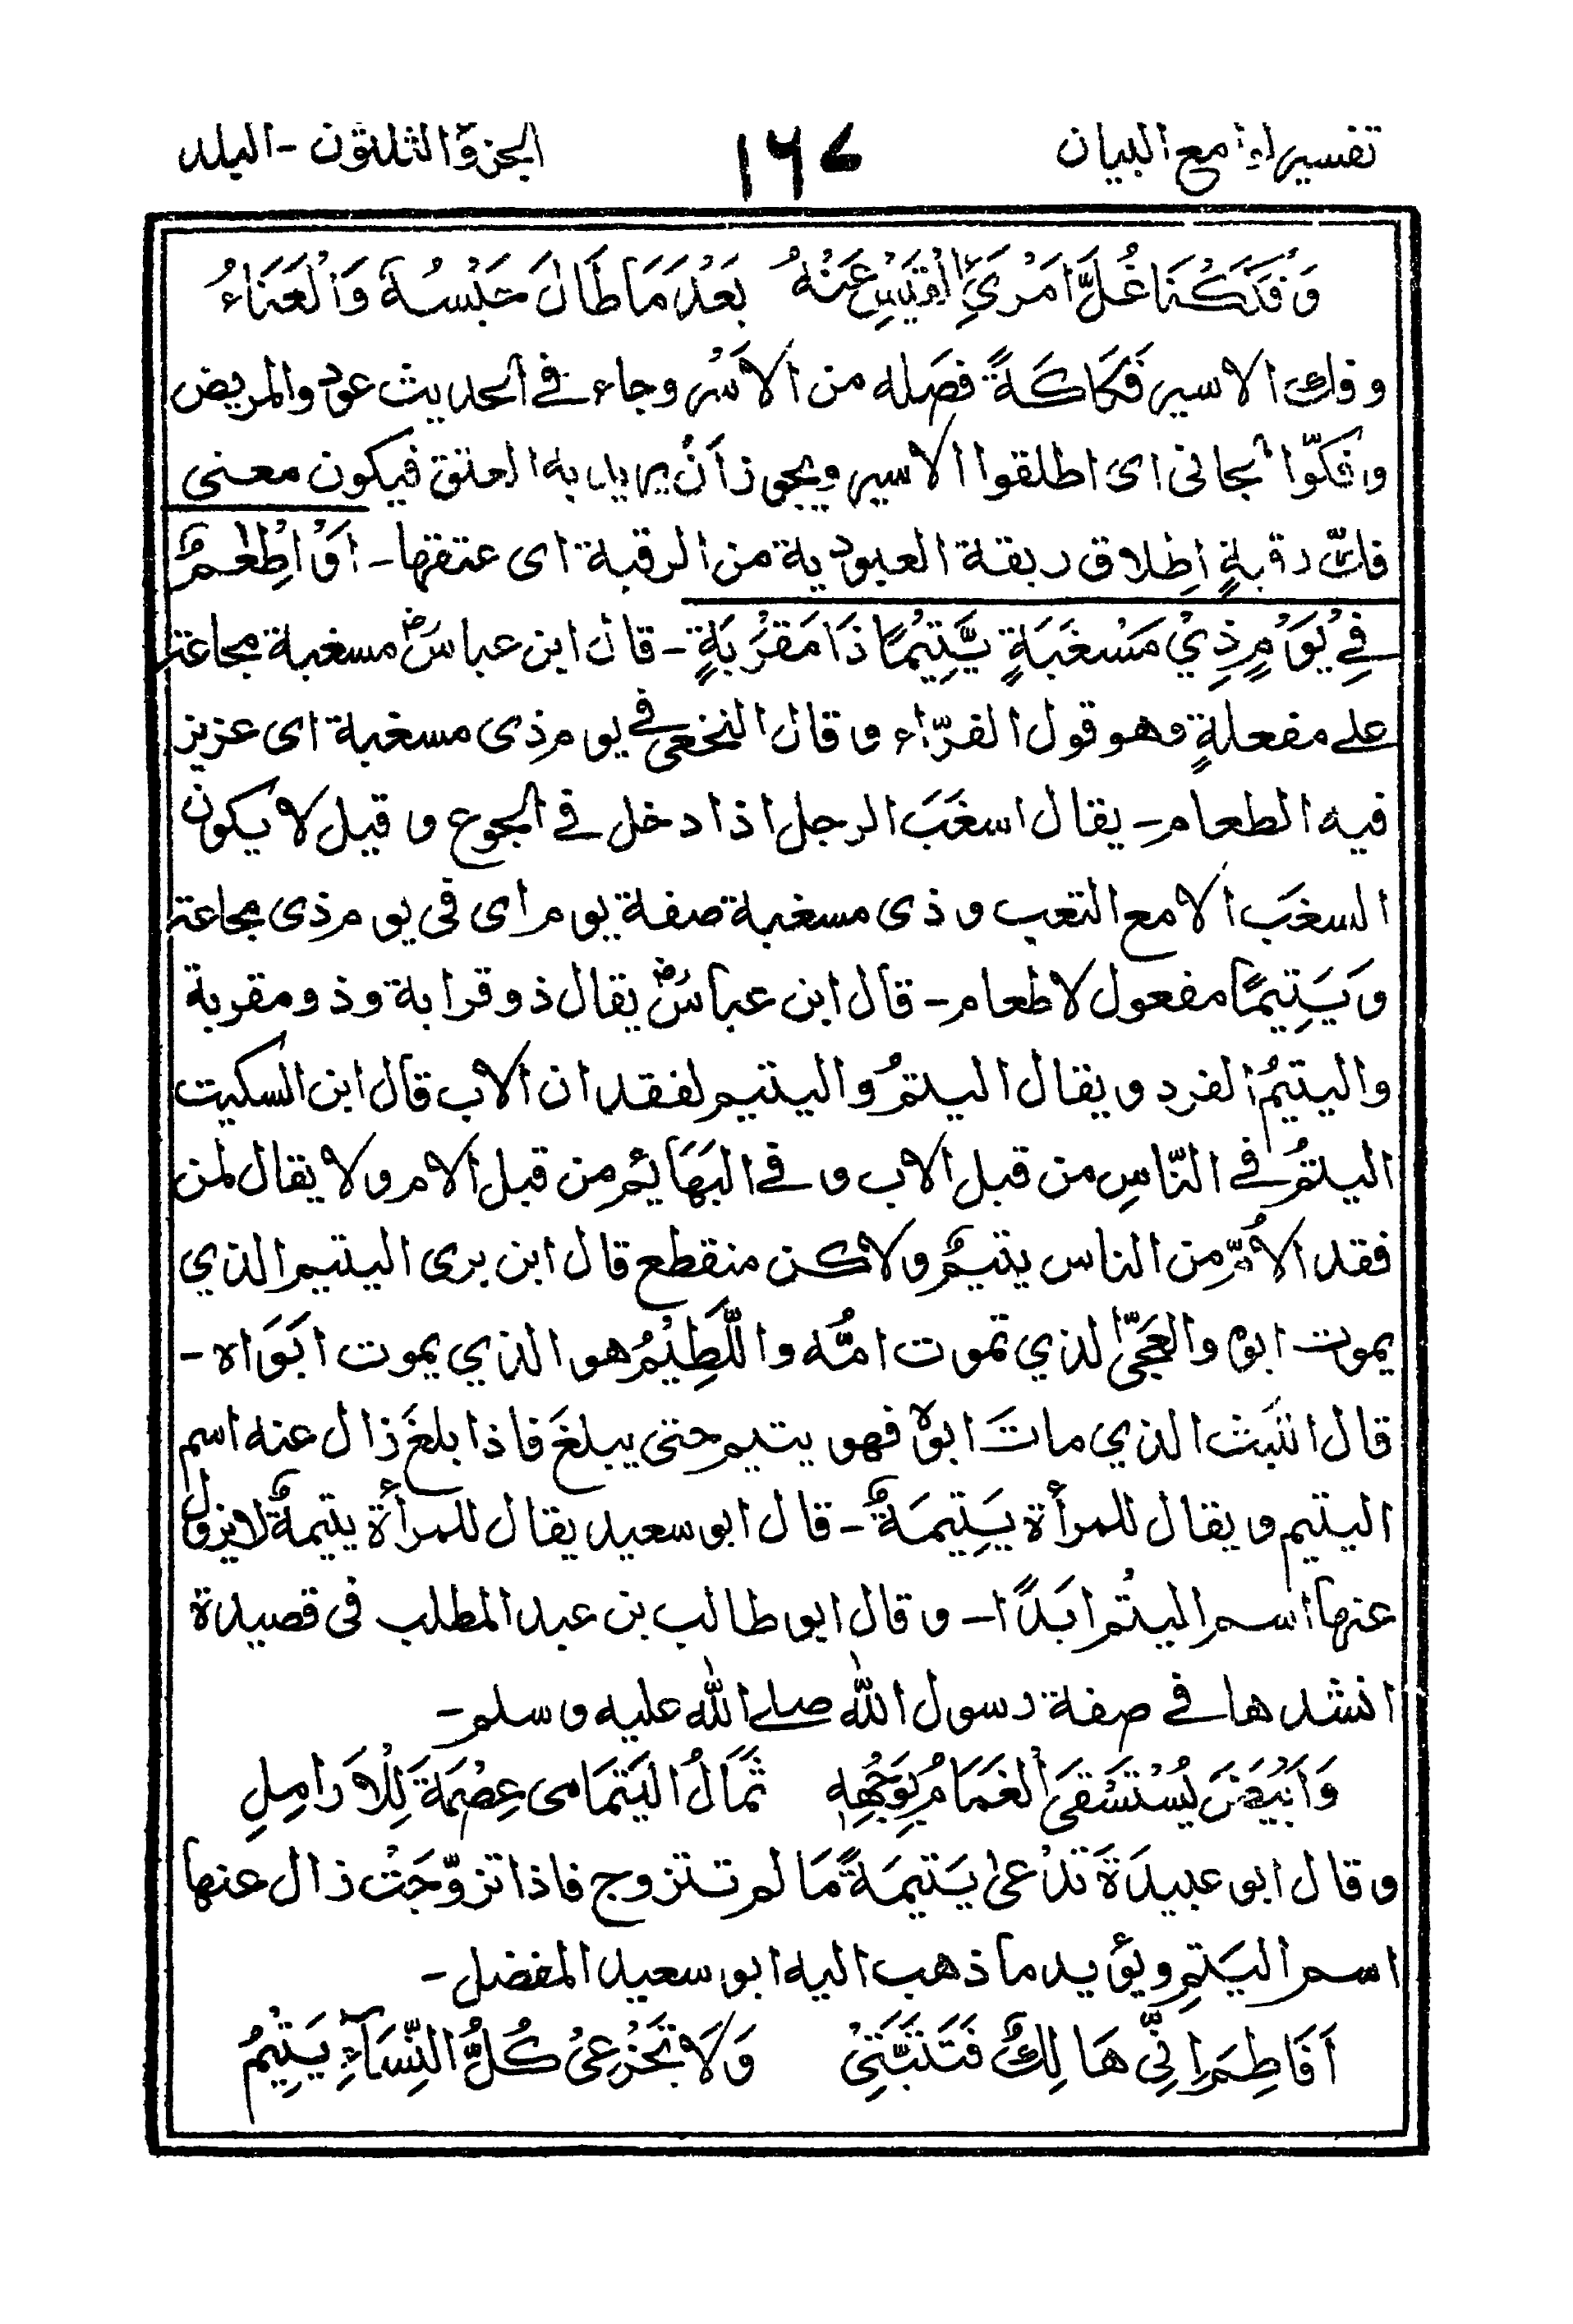 تفسير لوامع البيان ١٦٧ الجزؤ الثلثون - البلد
وَفَكَكْنَا غُلَّ امَرْئِ الْقَيْسِ عَنْهُ بَعْدَ مَا طَالَ حَبْسُهُ وَالْعَنَاءُ
وفك الاسير فَكَاكَةً فصَله من الاَسْر وجاء في الحديث عودوا المريض
وفكّوا العانى اى اطلقوا الاسير ويجوز أن يريد به العتق فيكون معنى
فكّ رقبةٍ اِطلاق ربقة العبودية من الرقبة اى عتقها - اَوْ اِطْعٰمٌ
فِيْ يَوْمٍ ذِيْ مَسْغَبَةٍ يَّتِيْمًا ذَا مَقْرَبَةٍ - قال ابن عباسؓ مسغبة مجاعة
على مفعلةٍ وهو قول الفرّاء وقال النخعى في يوم ذى مسغبة اى عزيز
فيه الطعام - يقال اسغَبَ الرجل اذا دخل في الجوع وقيل لا يكون
السغَب الا مع التعب وذى مسغبة صفة يوم اى فى يوم ذى مجاعة
ويَتِيمًا مفعول لاطعام - قال ابن عباسؓ يقال ذو قرابة وذو مقربة
واليتيمُ الفرد ويقال اليتمُ واليتيم لفقدان الاب قال ابن السكيت
اليتمُ في النّاسِ من قبل الاب وفي البَهَائم من قبل الام ولا يقال لمن
فقد الاُمّ من الناس يتيمٌ ولاكن منقطع قال ابن برى اليتيم الذي
يموت ابوه والعَجّىُ الذي تموت امُّه واللَّطِيْمُ هو الذي يموت ابَوَاه -
قال الليث الذي ماتَ ابوهُ فهو يتيم حتى يبلغَ فاذا بلغَ زال عنه اسم
اليتيم ويقال للمرأة يَتِيمَةٌ - قال ابو سعيد يقال للمرأة يتيمةٌ لايزول
عنها اسم اليتُم ابَدًا - وقال ابو طالب بن عبد المطلب فى قصيدة
انشدها في صفة رسول الله صلى الله عليه وسلم -
وَاَبْيَضَ يُسْتَسْقَى الغَمَامُ بِوَجْهِهٖ ثَمَالُ اليَتَامٰى عِصْمَةَ لِلْاَرَامِلِ
وقال ابو عبيدَةَ تدْعىٰ يَتيمَةً مَا لم تتزوج فاذا تزوّجَتْ زال عنها
اسم اليَتمِ ويؤيد ما ذهب اليه ابو سعيد المفضل -
اَفَاطِمَ اِنِّي هَالِكٌ فَتَثَبَّتِيْ وَلَا تَجْزَعِيْ كُلُّ النِّسَآءِ يَتِيْمُ